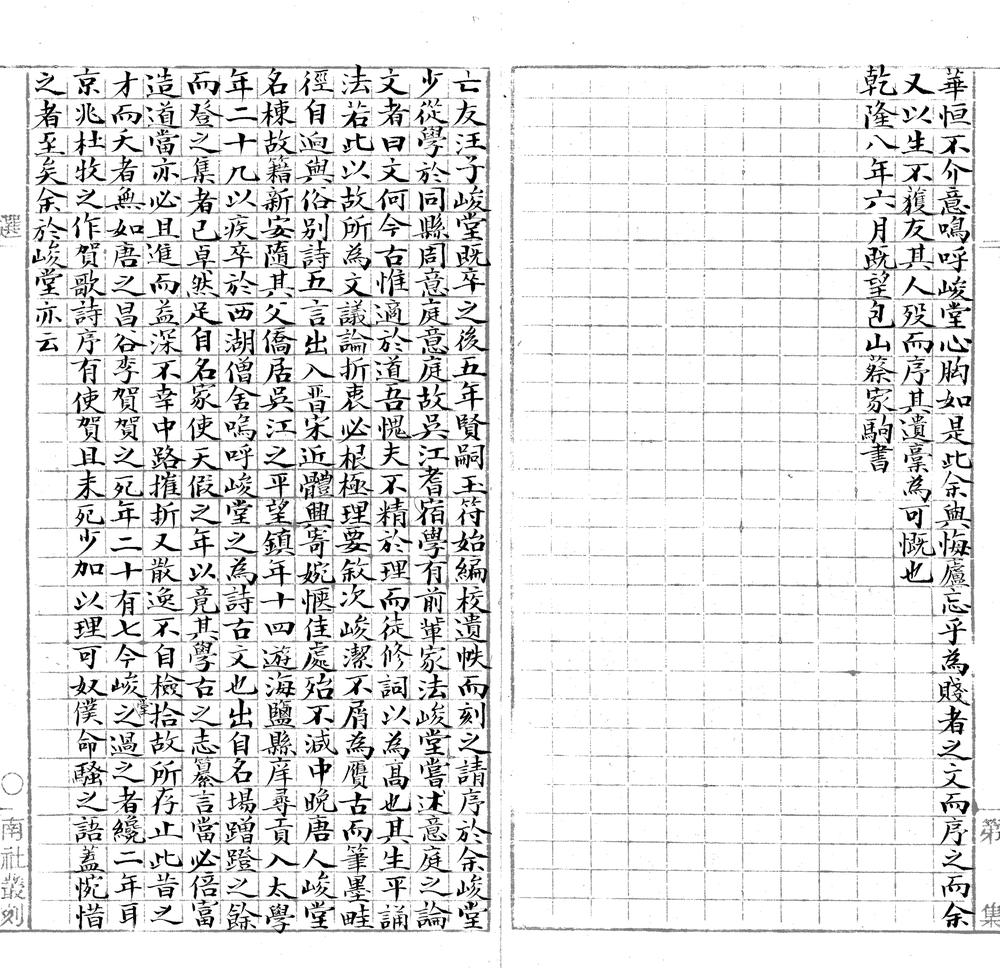 華恒不介意嗚呼峻堂心胸如是此余與悔廬忘乎為賤者之文而序之而余
又以生不獲友其人歿而序其遺稾為可慨也
乾隆八年六月既望包山蔡家駒書
第
集
亡友汪子峻堂既卒之後五年賢嗣玉符始編校遺帙而刻之請序於余峻堂
少從學於同縣周意庭意庭故吳江耆宿學有前輩家法峻堂嘗述意庭之論
文者曰文何今古惟適於道吾愧夫不精於理而徒修詞以為高也其生平誦
法若此以故所為文議論折衷必根極理要敘次峻潔不屑為贋古而筆墨畦
徑自迥與俗別詩五言出入晋宋近體興寄婉愜佳處殆不減中晚唐人峻堂
名棟故籍新安隨其父僑居吳江之平望鎮年十四遊海鹽縣庠尋貢入太學
年二十九以疾卒於西湖僧舍嗚呼峻堂之為詩古文也出自名場蹭蹬之餘
而登之集者已卓然足自名家使天假之年以竟其學古之志纂言當必倍富
造道當亦必且進而益深不幸中路摧折又散逸不自檢拾故所存止此昔之
才而夭者無如唐之昌谷李賀賀之死年二十有七今峻堂之過之者纔二年耳
京兆杜牧之作賀歌詩序有使賀且未死少加以理可奴僕命騷之語蓋惋惜
之者至矣余於峻堂亦云
選
〇
南社叢刻